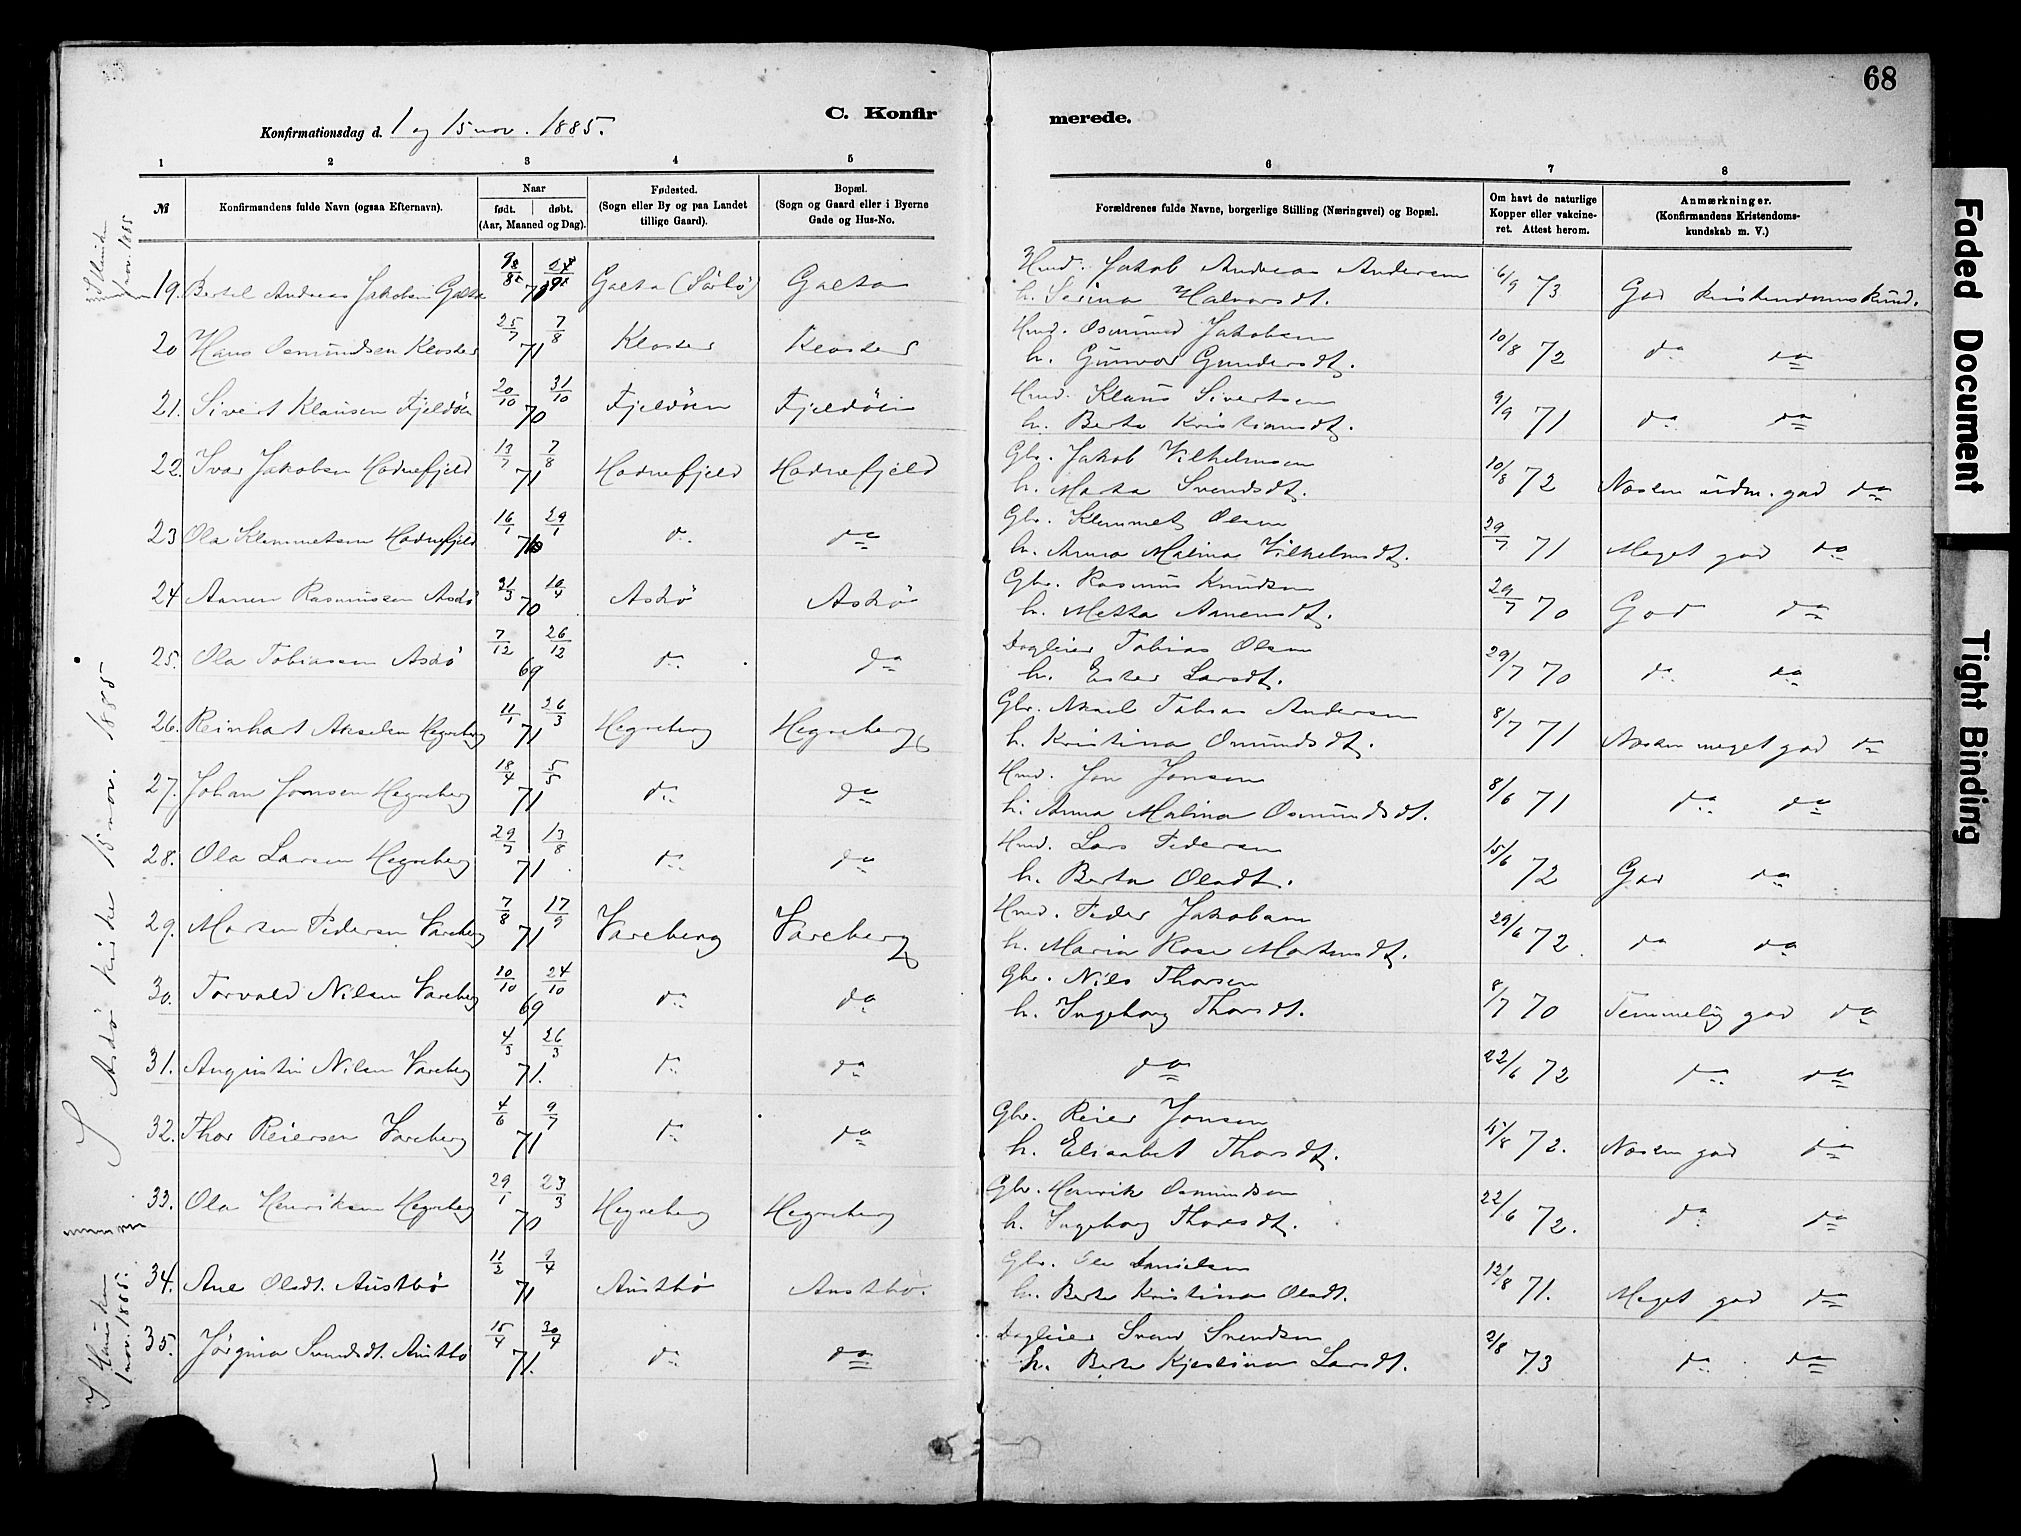 68
C. Konfirmerede.
Konfirmationsdag d. 1 og 15 nov. 1885.
1 2 3 4 5 6 7 8
№
Konfirmandens fulde Navn (ogsaa Efternavn).
Naar
født. døbt.
(Aar, Maaned og Dag).
Fødested.
(Sogn eller By og paa Landet tillige Gaard).
Bopæl.
(Sogn og Gaard eller i Byerne Gade og Hus-No.
Forældrenes fulde Navne, borgerlige Stilling (Næringsvei) og Bopæl.
Om havt de naturlige Kopper eller vakcineret. Attest herom.
Anmærkninger.
(Konfirmandens Kristendomskundskab m. V.)
19. Bertel Andreas Jakobsen Galta Galta (Sørbø) Galta Hmd. Jakob Andreas Andersen h. Serina Halvorsdt. 6/9 73 God kristendomskund.
20 Hans Osmundsen Kloster 25/7 7/8 71 Kloster Kloster Hmd. Osmund Jakobsen h. Gunvor Gundersdt. 10/8 72 do do
21. Sivert Klausen Fjeldøen 20/10 31/10 70 Fjeldøen Fjeldøen Hmd. Klaus Sivertsen h. Berta Kristiansdt. 9/9 71 do do
22. Ivar Jakobsen Hodnefjeld 13/7 7/8 71 Hodnefjeld Hodnefjeld Gbr. Jakob Vilhelmsen h. Marta Svendsdt. 10/8 72 Næsten udm. god do
23 Ola Klemmetsen Hodnefjeld 16/1 29/1 71 do do Gbr. Klemmet Olsen h. Anna Malina Vilhelmsdt. 29/7 71 Meget god do
24 Aanen Rasmussen Askø 31/3 10/4 70 Askø Askø Gbr. Rasmus Knudsen h. Metta Aanensdt. 29/7 70 God do
25. Ola Tobiassen Askø 7/12 26/12 69 do do Dagleier Tobias Olsen h. Ester Larsdt. 29/7 70 do do
26. Reinhart Akselsen Hegreberg 11/1 26/3 71 Hegreberg Hegreberg Gbr. Aksel Tobias Andersen h. Kristina Omundsdt. 8/7 71 Næsten meget god do
27. Johan Jonsen Hegreberg 18/4 5/5 71 do do Hmd. Jon Jonsen h. Anna Malina Osmundsdt. 8/6 71 do do
28. Ola Larsen Hegreberg 29/7 13/8 71 do do Hmd. Lars Pedersen h. Berta Olsdt. 15/6 72 God do
29. Morten Pedersen Vareberg 7/8 17/9 71 Vareberg Vareberg Hmd. Peder Jakobsen h. Maria Rose Mortensdt. 29/6 72. do do
30. Torvald Nilsen Vareberg 10/10 24/10 69 do do Gbr. Nils Thorsen h. Ingeborg Thorsdt. 8/7 70 Temmelig god do
31. Augustin Nilsen Vareberg 4/3 26/3 71. do do do 22/6 72 do do
32. Thor Reiersen Vareberg 4/6 9/7 71 do do Gbr. Reier Jonsen h. Elisabet Thorsdt. 15/8 72. Næsten god do
33. Ola Henriksen Hegreberg 29/1 23/3 70 Hegreberg Hegreberg Gbr. Henrik Osmundsen h. Ingeborg Thorsdt. 22/6 72. do do
34. Ane Olsdt. Austbø 11/2 9/4 71 Austbø Austbø. Gbr. Ole Danielsen h. Berte Kristina Olsdt. 12/8 71. Meget god do
35. Jørgina Svendsdt. Austbø 15/4 30/4 71. do do Dagleier Svend Svendsen h. Berte Kjestina Larsdt. 2/8 73 do do
1 nov. 1885
I Askø kirke 15 nov. 1885
I Hausken 1 nov. 1885.
Faded Document
Tight Binding